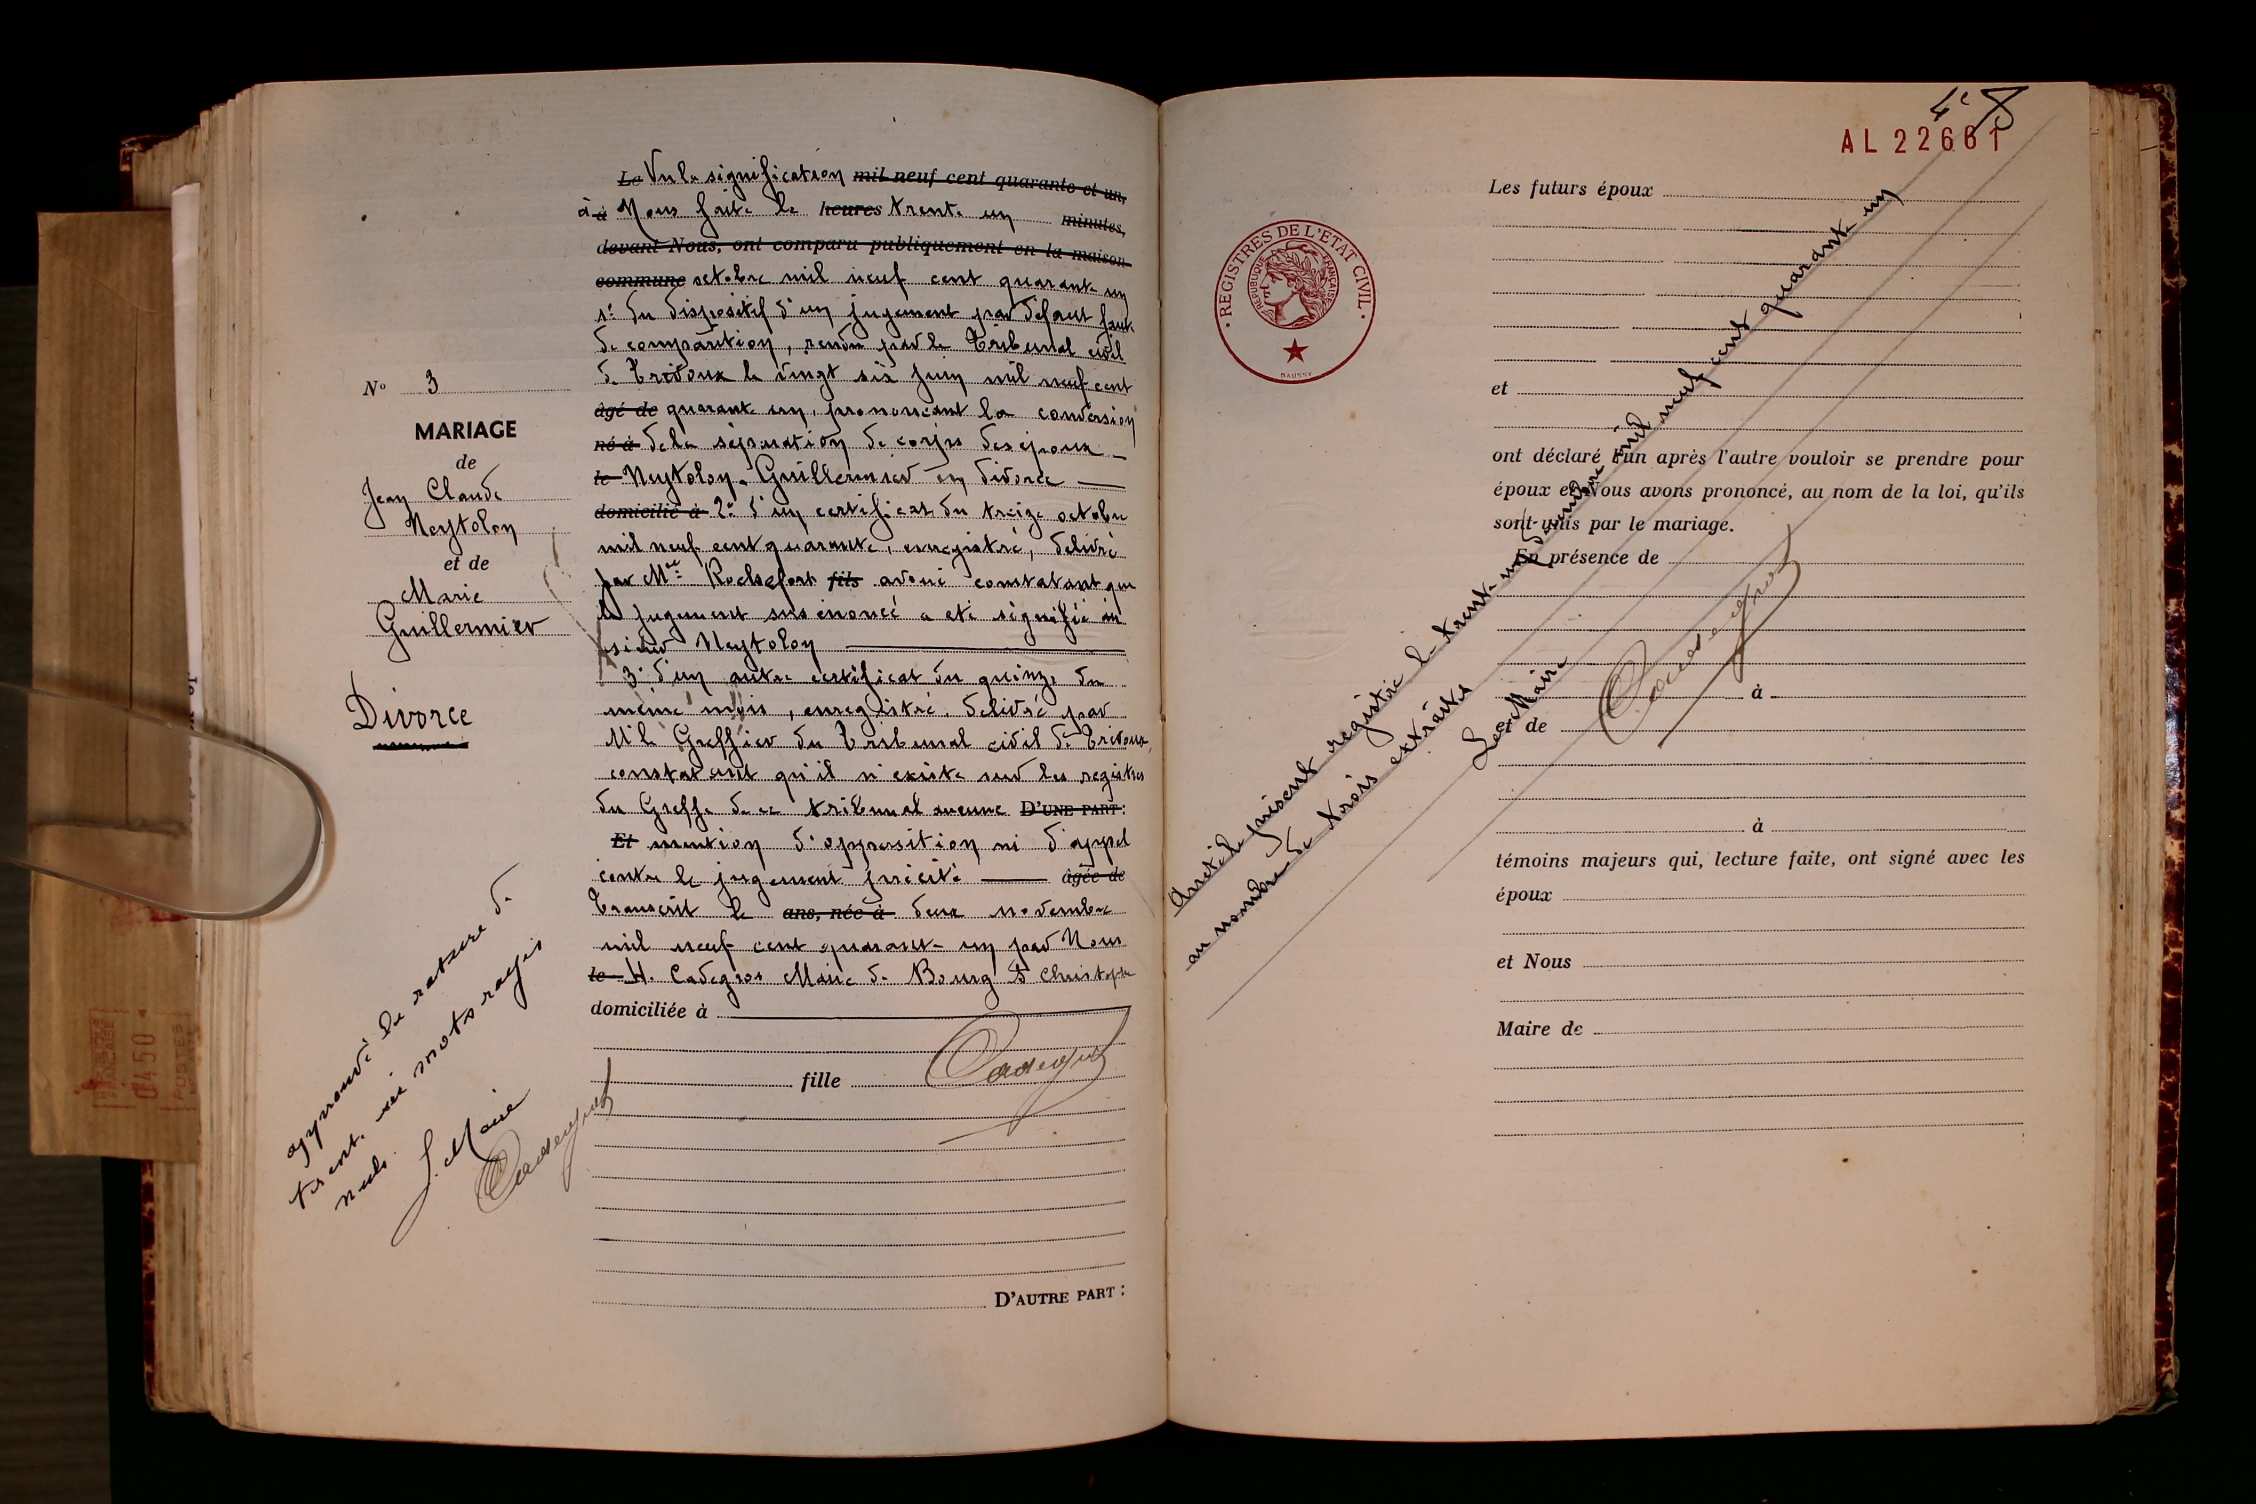 N° 3
MARIAGE
de
Jean Claude
Neytolon
et de
Marie
Guillermier
Divorce
approuvé la rature de
trente six mots rayés
nuls.
Le Maire
Cadegros
Le Vu la signification mil neuf cent quarante et un,
à à Nous faite le heures trente un minutes,
devant Nous, ont comparu publiquement en la maison
commune octobre mil neuf cent quarante un
1° du dispositif d'un jugement par défaut faute
de comparution, rendu par le Tribunal civil
de Trévoux le vingt six juin mil neuf cent
âgé de quarante un, prononçant la conversion
né à de la séparation de corps des époux
le Neytolon-Guillermier en divorce
domicilié à 2° d'un certificat du treize octobre
mil neuf cent quarante, enregistré, délivré
par Me Rochefort fils avoué constatant que
le jugement sus énoncé a été signifié au
sieur Neytolon
3° d'un autre certificat du quinze du
même mois, enregistré, délivré par
M le Greffier du Tribunal civil de Trévoux,
constatant qu'il n'existe sur les registres
du Greffe de ce tribunal aucune D'UNE PART :
Et mention d'opposition ni d'appel
contre le jugement précité âgée de
Transcrit le ans, née à deux novembre
mil neuf cent quarante un par Nous
le H. Cadegros Maire de Bourg St Christophe
domiciliée à
fille
Cadegros
D'AUTRE PART :
4e
AL 22661
REGISTRES DE L'ETAT CIVIL
REPUBLIQUE FRANÇAISE
DAUSSY
Les futurs époux
et
ont déclaré l'un après l'autre vouloir se prendre pour
époux et Nous avons prononcé, au nom de la loi, qu'ils
sont unis par le mariage.
En présence de
à
et de
à
témoins majeurs qui, lecture faite, ont signé avec les
époux
et Nous
Maire de
Arrêté le présent registre le trente un décembre mil neuf cent quarante un
au nombre de trois extraits
Le Maire
Cadegros